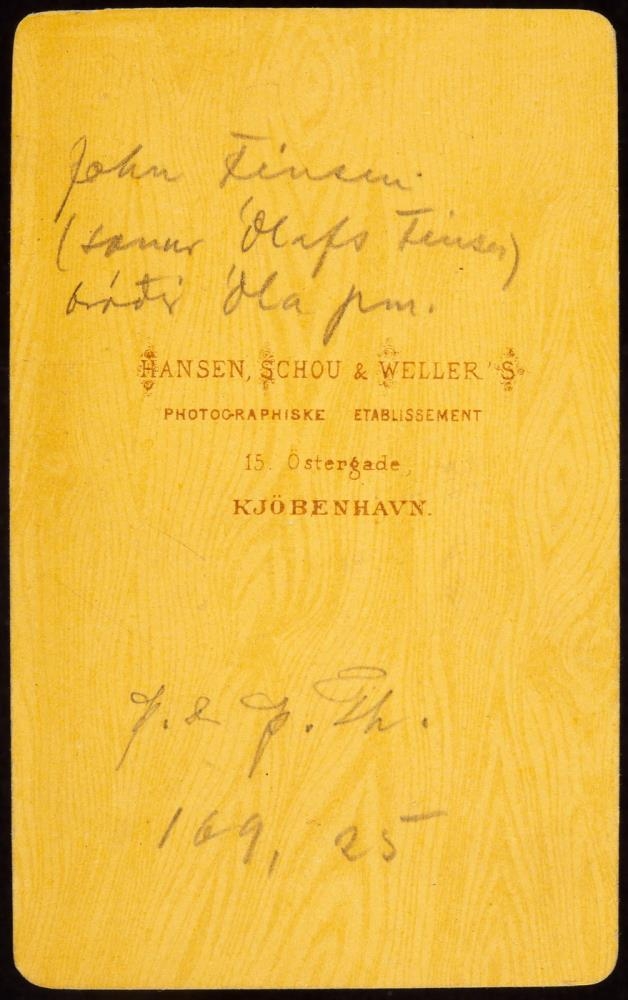 John Finsen.
(sonur Ólafs Finsen)
bróðir Óla pm.
HANSEN, SCHOU & WELLER'S
PHOTOGRAPHISKE ETABLISSEMENT
15. Östergade,
KJÖBENHAVN.
p. Th.
169, 25